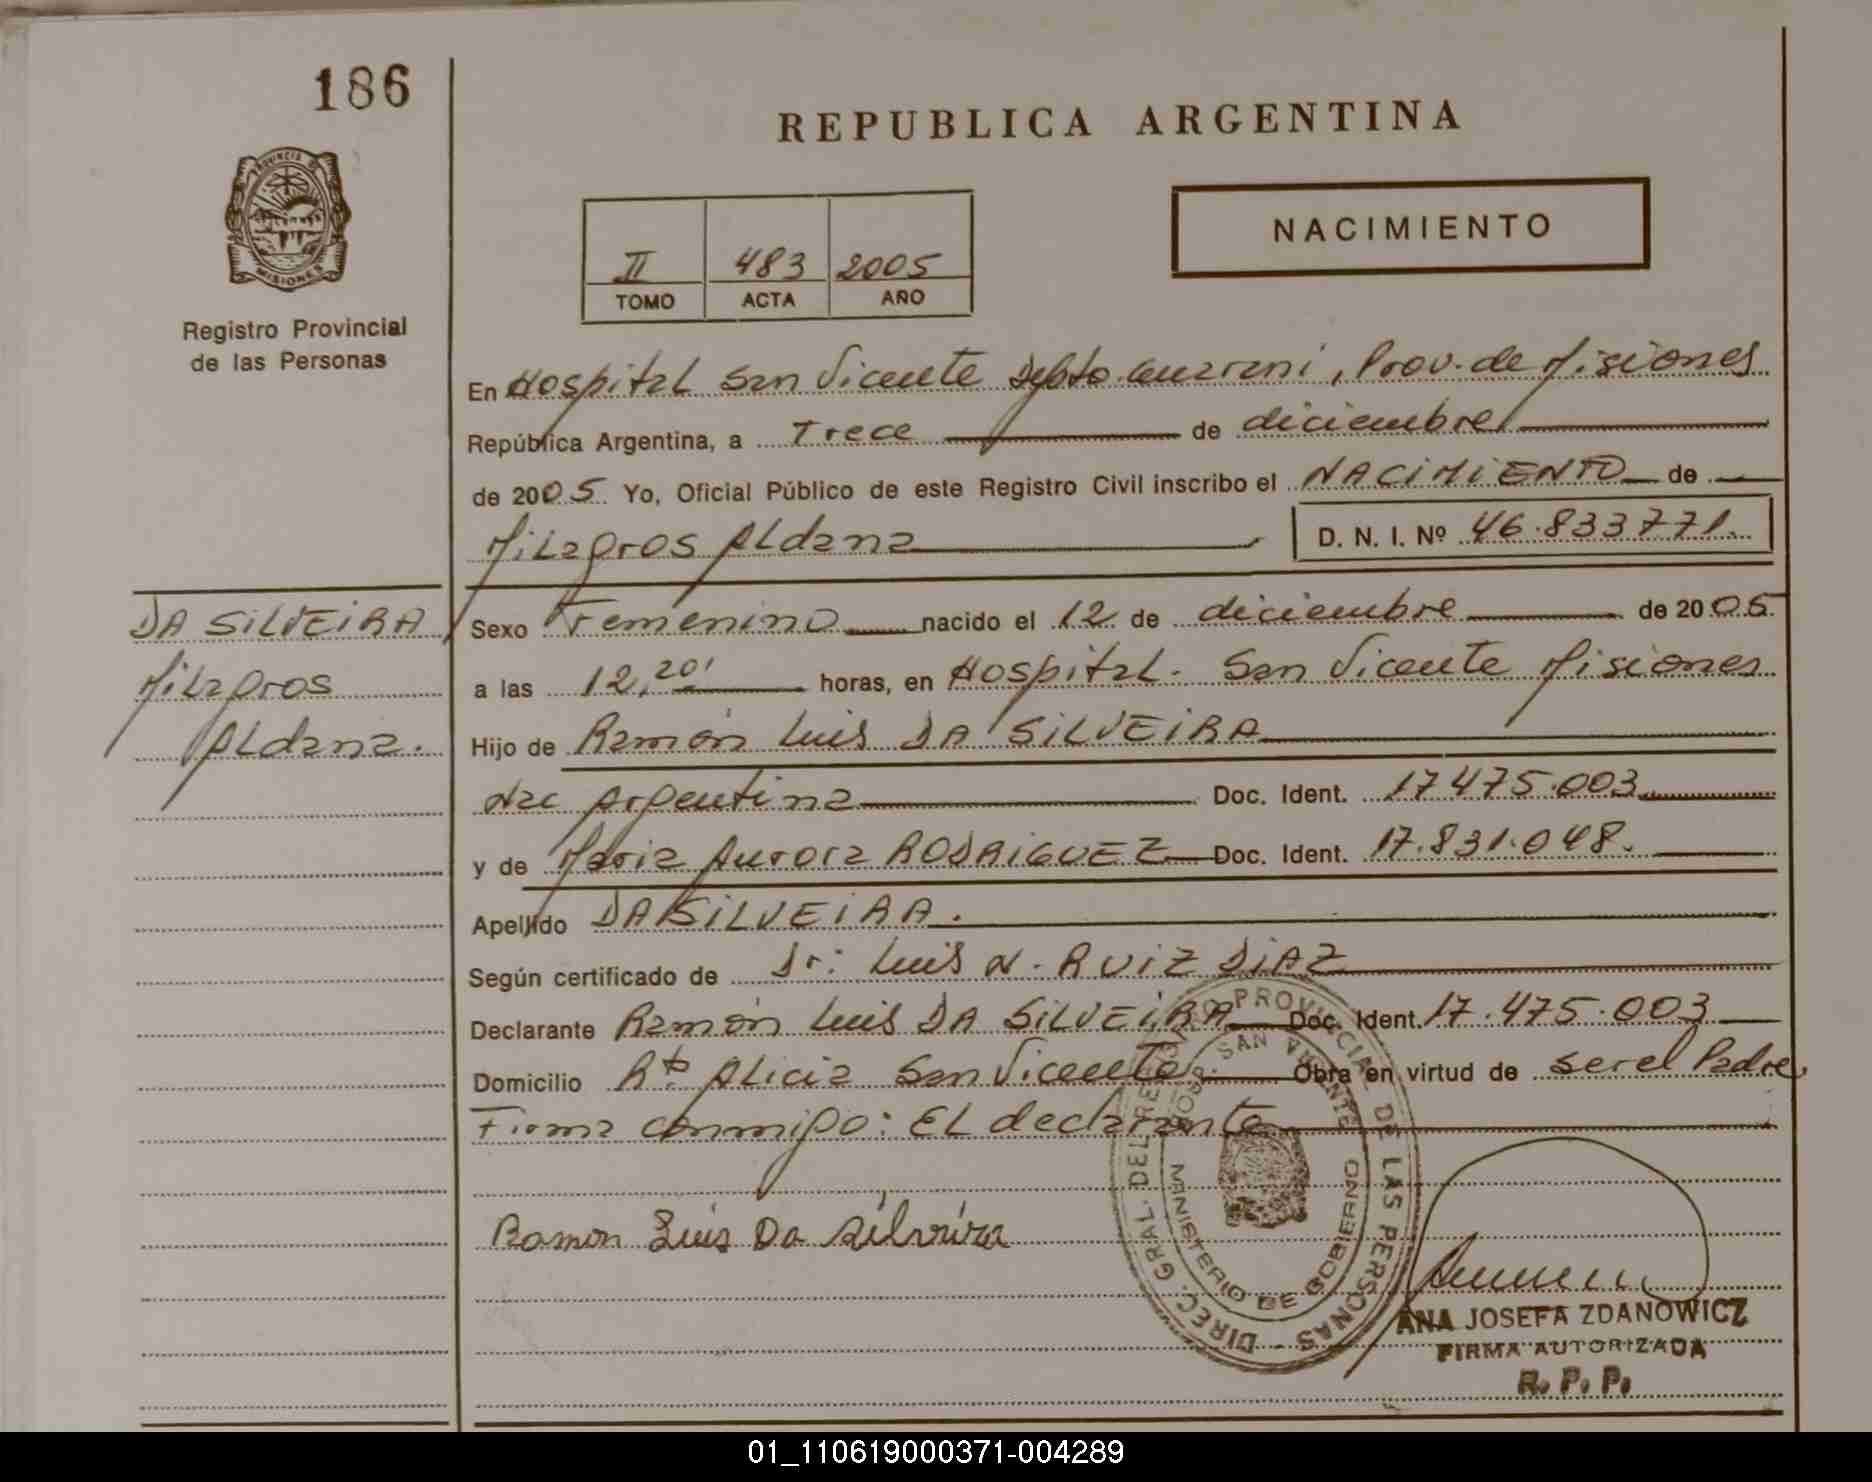 186
REPUBLICA ARGENTINA
PROVINCIA DE
MISIONES
Registro Provincial
de las Personas
II 483 2005
TOMO ACTA AÑO
NACIMIENTO
En Hospital San Vicente Depto. Guarani, Prov. de Misiones
República Argentina, a Trece de diciembre
de 2005 Yo, Oficial Público de este Registro Civil inscribo el NACIMIENTO de
Milagros Aldana D. N. I. Nº 46.833771.
DA SILVEIRA
Milagros
Aldana.
Sexo Femenino nacido el 12 de diciembre de 2005
a las 12,20' horas, en Hospital. San Vicente Misiones
Hijo de Ramón Luis DA SILVEIRA
Nac Argentina Doc. Ident. 17475.003
y de Maria Aurora RODRIGUEZ Doc. Ident. 17.831.048.
Apellido DA SILVEIRA.
Según certificado de Dr: Luis N. RUIZ DIAZ
Declarante Ramón Luis DA SILVEIRA Doc. Ident. 17.475.003
Domicilio Rto Alicia San Vicente Obra en virtud de ser el Padre
Firma conmigo: El declarante
Ramon Luis Da Silveira
DIREC. GRAL. DEL REGISTRO PROVINCIAL DE LAS PERSONAS
SAN VICENTE
MINISTERIO DE GOBIERNO
ANA JOSEFA ZDANOWICZ
FIRMA AUTORIZADA
R. P. P.
01_110619000371-004289